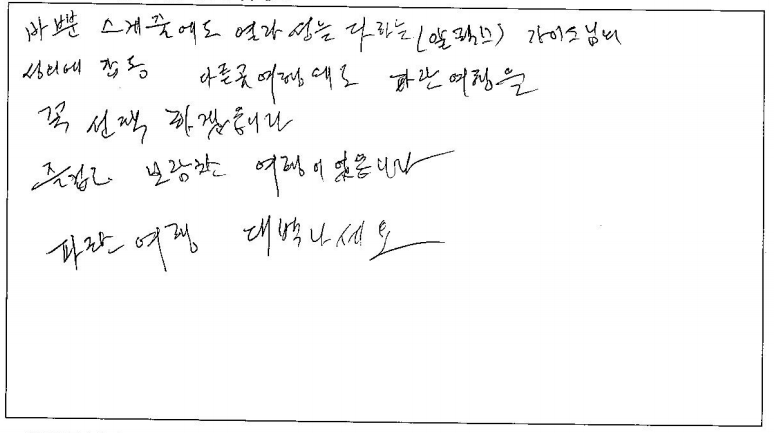 바쁜 스케줄에도 열과 성을 다하는 (알렉스) 가이드님의
성의에 감동 다른곳 여행때도 파란여행을
꼭 선택 하겠읍니다
즐겁고 보람찬 여행이 였읍니다
파란여행 대박나세요